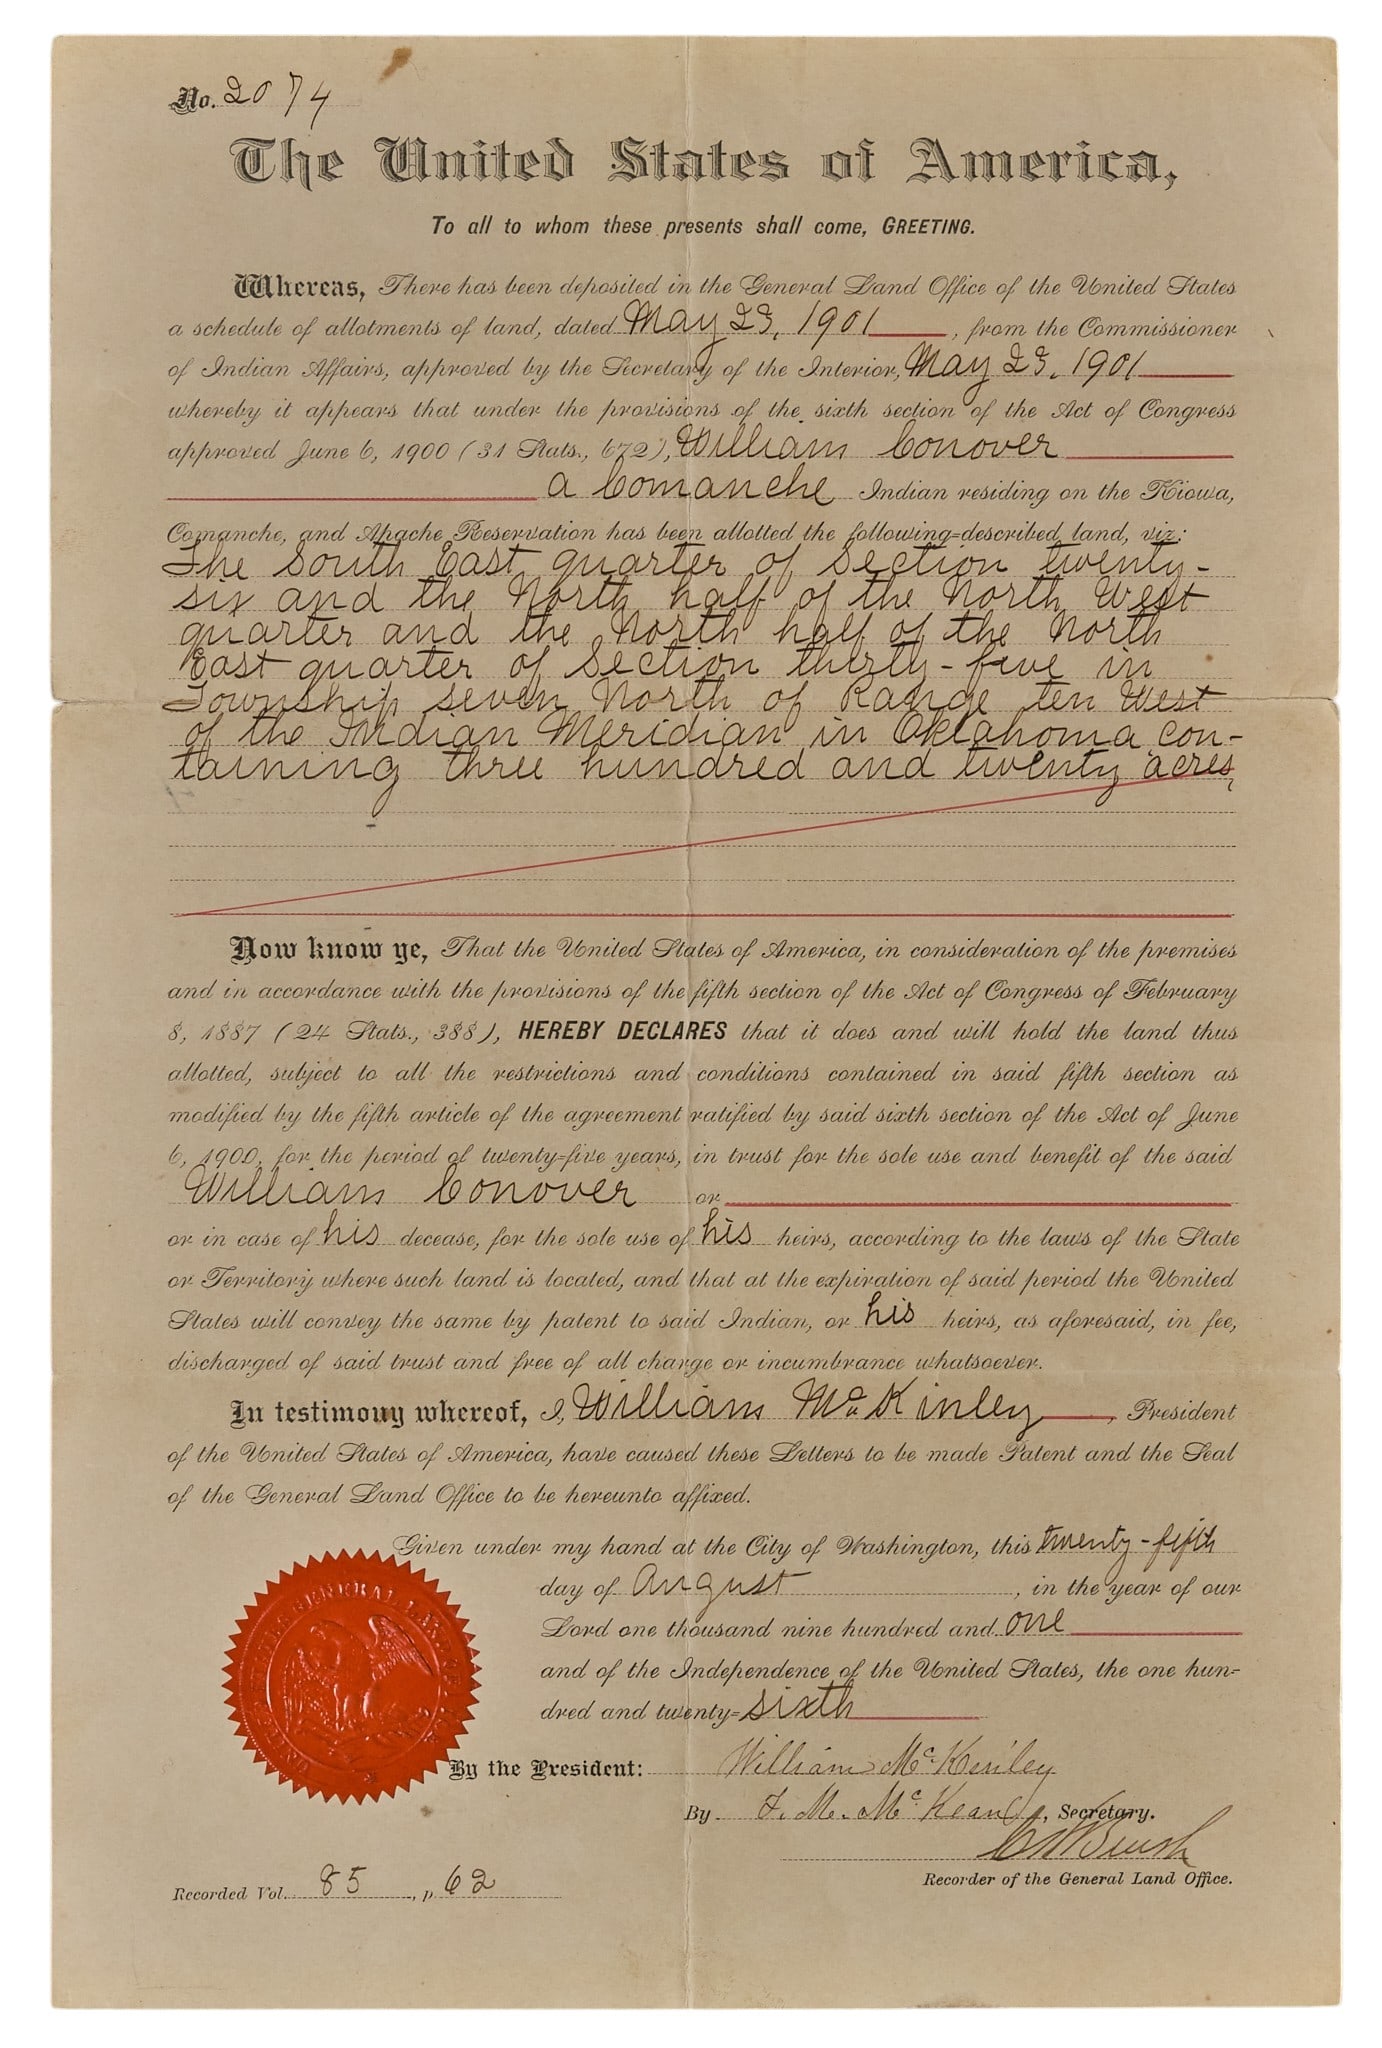 No. 2074
The United States of America,
To all to whom these presents shall come, GREETING.
Whereas, There has been deposited in the General Land Office of the United States
a schedule of allotments of land, dated May 23, 1901, from the Commissioner
of Indian Affairs, approved by the Secretary of the Interior, May 23, 1901
whereby it appears that under the provisions of the sixth section of the Act of Congress
approved June 6, 1900 (31 Stats., 672), William Conover
a Comanche Indian residing on the Kiowa,
Comanche, and Apache Reservation has been allotted the following-described land, viz:
The South East quarter of Section twenty-
six and the North half of the North West
quarter and the North half of the North
East quarter of Section thirty-five in
Township seven North of Range ten West
of the Indian Meridian in Oklahoma con-
taining three hundred and twenty acres,
Now know ye, That the United States of America, in consideration of the premises
and in accordance with the provisions of the fifth section of the Act of Congress of February
8, 1887 (24 Stats., 388), HEREBY DECLARES that it does and will hold the land thus
allotted, subject to all the restrictions and conditions contained in said fifth section as
modified by the fifth article of the agreement ratified by said sixth section of the Act of June
6, 1900, for the period of twenty-five years, in trust for the sole use and benefit of the said
William Conover or
or in case of his decease, for the sole use of his heirs, according to the laws of the State
or Territory where such land is located, and that at the expiration of said period the United
States will convey the same by patent to said Indian, or his heirs, as aforesaid, in fee,
discharged of said trust and free of all charge or incumbrance whatsoever.
In testimony whereof, I, William McKinley, President
of the United States of America, have caused these Letters to be made Patent and the Seal
of the General Land Office to be hereunto affixed.
Given under my hand at the City of Washington, this twenty-fifth
day of August, in the year of our
Lord one thousand nine hundred and one
and of the Independence of the United States, the one hun-
dred and twenty-sixth
By the President: William McKinley
By F. M. McKean, Secretary.
C H Brush
Recorder of the General Land Office.
Recorded Vol. 85, p. 62
UNITED STATES GENERAL LAND OFFICE